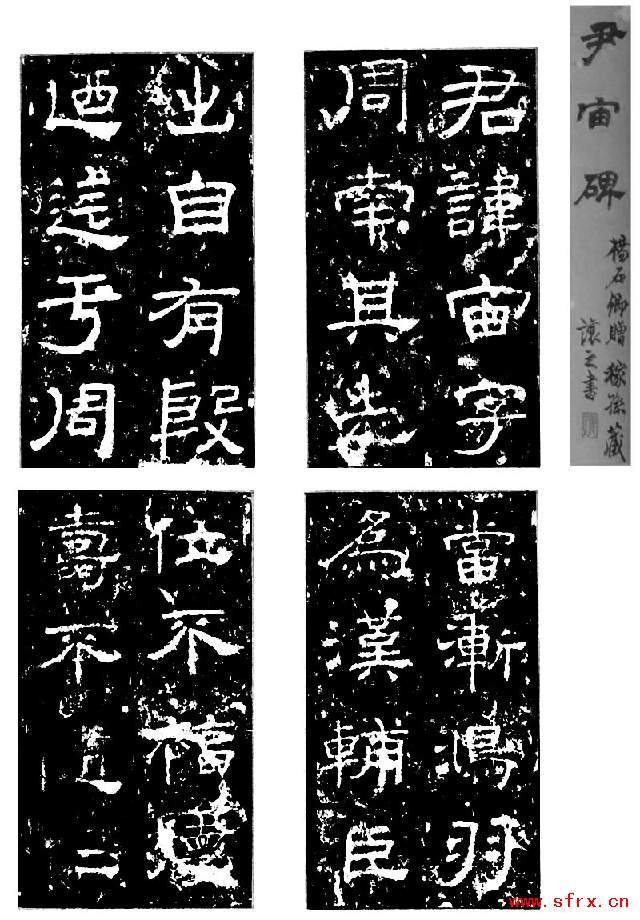 尹宙碑
楊石卿贈 稼孫藏
讓之書
君諱宙字
周南其先
出自有殷
迺迄于周
當漸鴻羽
為漢輔臣
位不福德
壽不
www.sfrx.cn